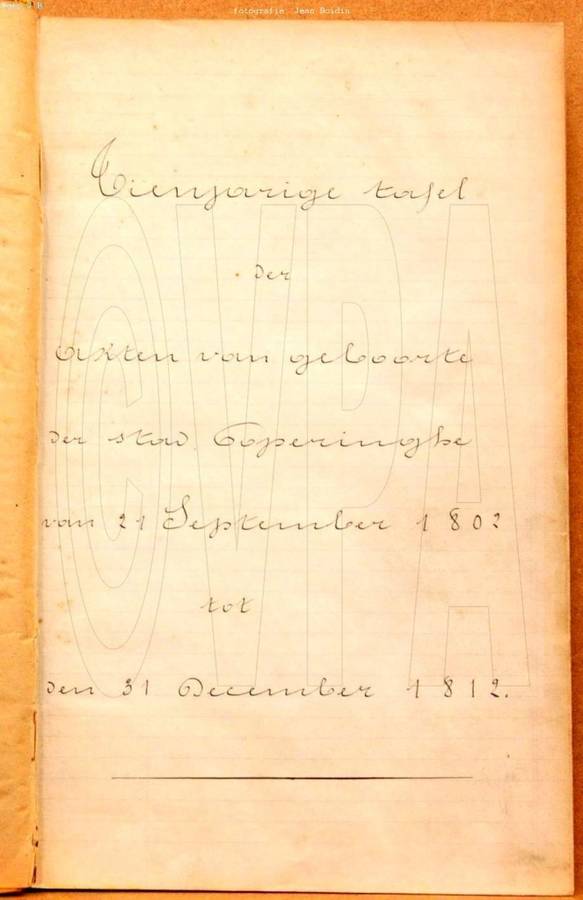 fotografie: Jean Boidin
Tienjarige tafel
der
Akten van geboorte
der stad Poperinghe
van 21 September 1802
tot
den 31 December 1812.
CVPA